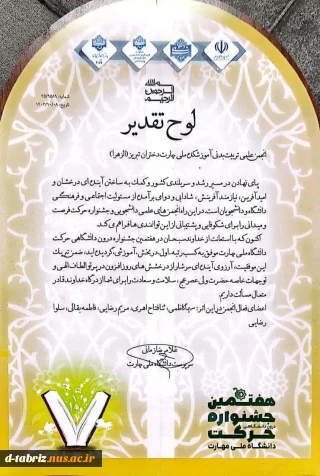 بسم الله الرحمن الرحیم
شماره:
تاریخ:
لوح تقدیر
انجمن علمی تربیت بدنی آموزشکده ملی مهارت دختران تبریز (الزهرا)
پای نهادن در مسیر رشد و سربلندی کشور و کمک به ساختن آینده‌ای درخشان و
امیدآفرین، نیازمند آفرینش، شادابی و دوای برآمده از مسئولیت اجتماعی و فرهنگی
دانشگاه و دانشجویان است. در این راه انجمن‌های علمی دانشجویی و جشنواره حرکت فرصت
و میدانی را برای شکوفایی و پشتیبانی از این توانمندی‌ها فراهم می‌کند.
اکنون که با استعانت از خداوند سبحان در هفتمین جشنواره درون دانشگاهی حرکت
دانشگاه ملی مهارت موفق به کسب رتبه اول، در بخش آموزشی گردیده‌اید، ضمن تبریک
این موفقیت، آرزوی آینده‌ای سرشار از درخشش‌های روزافزون در پرتو الطاف الهی و
توجهات خاصه حضرت ولی عصر(عج)، سلامت و سعادت را برای شما از درگاه خداوند قادر
متعال مسألت داریم.
اعضای فعال انجمن در این اثر: سها کاظمی، آفتاح اهری، مریم رضایی، فاطمه بقائی، سلوا
رضایی
غلامرضا زمانی
سرپرست دانشگاه ملی مهارت
هفتمین
جشنواره
درون دانشگاهی
حرکت
دانشگاه ملی مهارت
d-tabriz.nus.ac.ir